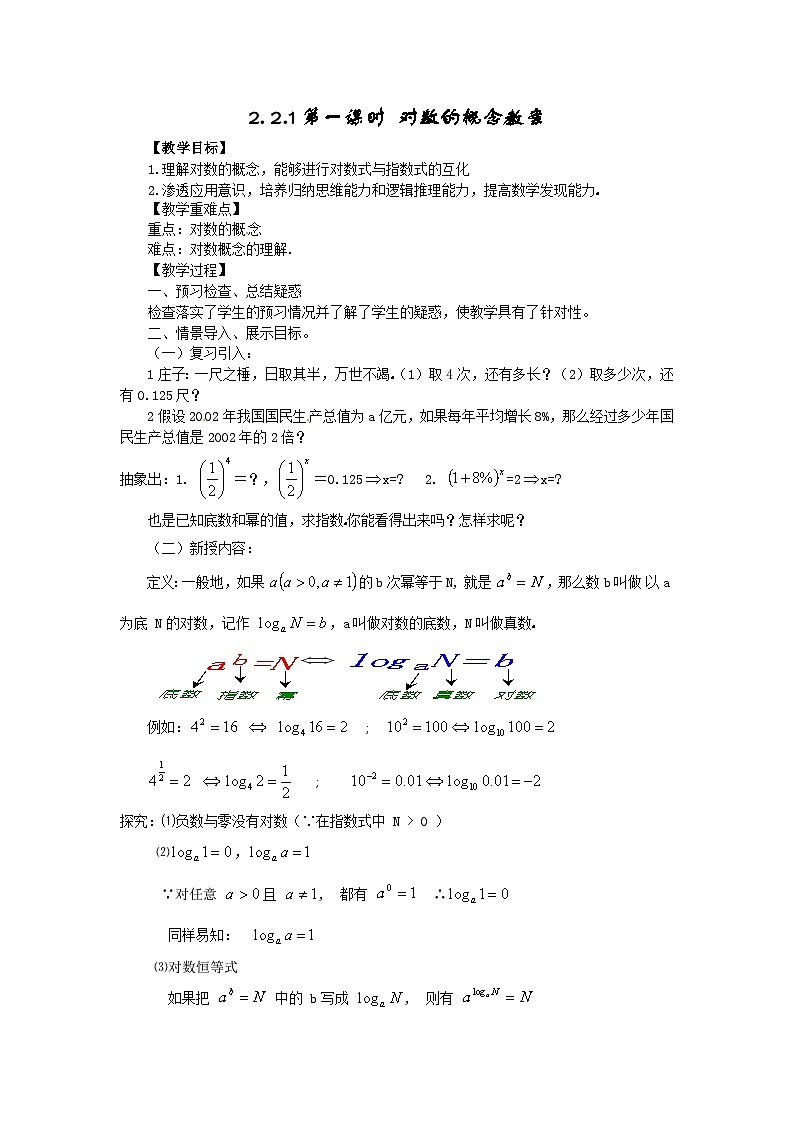 2.2.1第一课时 对数的概念教案
【教学目标】
1.理解对数的概念,能够进行对数式与指数式的互化
2.渗透应用意识,培养归纳思维能力和逻辑推理能力,提高数学发现能力.
【教学重难点】
重点:对数的概念
难点:对数概念的理解.
【教学过程】
一、预习检查、总结疑惑
检查落实了学生的预习情况并了解了学生的疑惑,使教学具有了针对性。
二、情景导入、展示目标。
(一)复习引入:
1庄子:一尺之棰,日取其半,万世不竭.(1)取4次,还有多长?(2)取多少次,还
有0.125尺?
2假设2002年我国国民生产总值为a亿元,如果每年平均增长8%,那么经过多少年国
民生产总值是2002年的2倍?
抽象出:1. (1/2)^4=?,(1/2)^x=0.125⇒x=? 2. (1+8%)^x=2⇒x=?
也是已知底数和幂的值,求指数.你能看得出来吗?怎样求呢?
(二)新授内容:
定义:一般地,如果 a(a>0,a≠1)的b次幂等于N, 就是 a^b=N,那么数b叫做 以a
为底 N的对数,记作 log_a N=b,a叫做对数的底数,N叫做真数.
a^b=N⇔log_a N=b
底数 指数 幂 底数 真数 对数
例如:4^2=16 ⇔ log_4 16=2 ; 10^2=100⇔log_10 100=2
4^(1/2)=2 ⇔log_4 2=1/2 ; 10^-2=0.01⇔log_10 0.01=-2
探究:⑴负数与零没有对数(∵在指数式中 N > 0 )
⑵log_a 1=0,log_a a=1
∵对任意 a>0且 a≠1, 都有 a^0=1 ∴log_a 1=0
同样易知: log_a a=1
⑶对数恒等式
如果把 a^b=N 中的 b写成 log_a N, 则有 a^(log_a N)=N